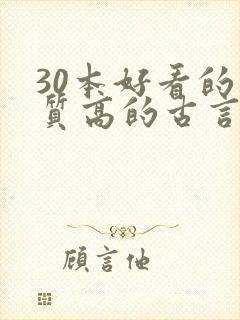 30本好看的
质高的古言
顾言他